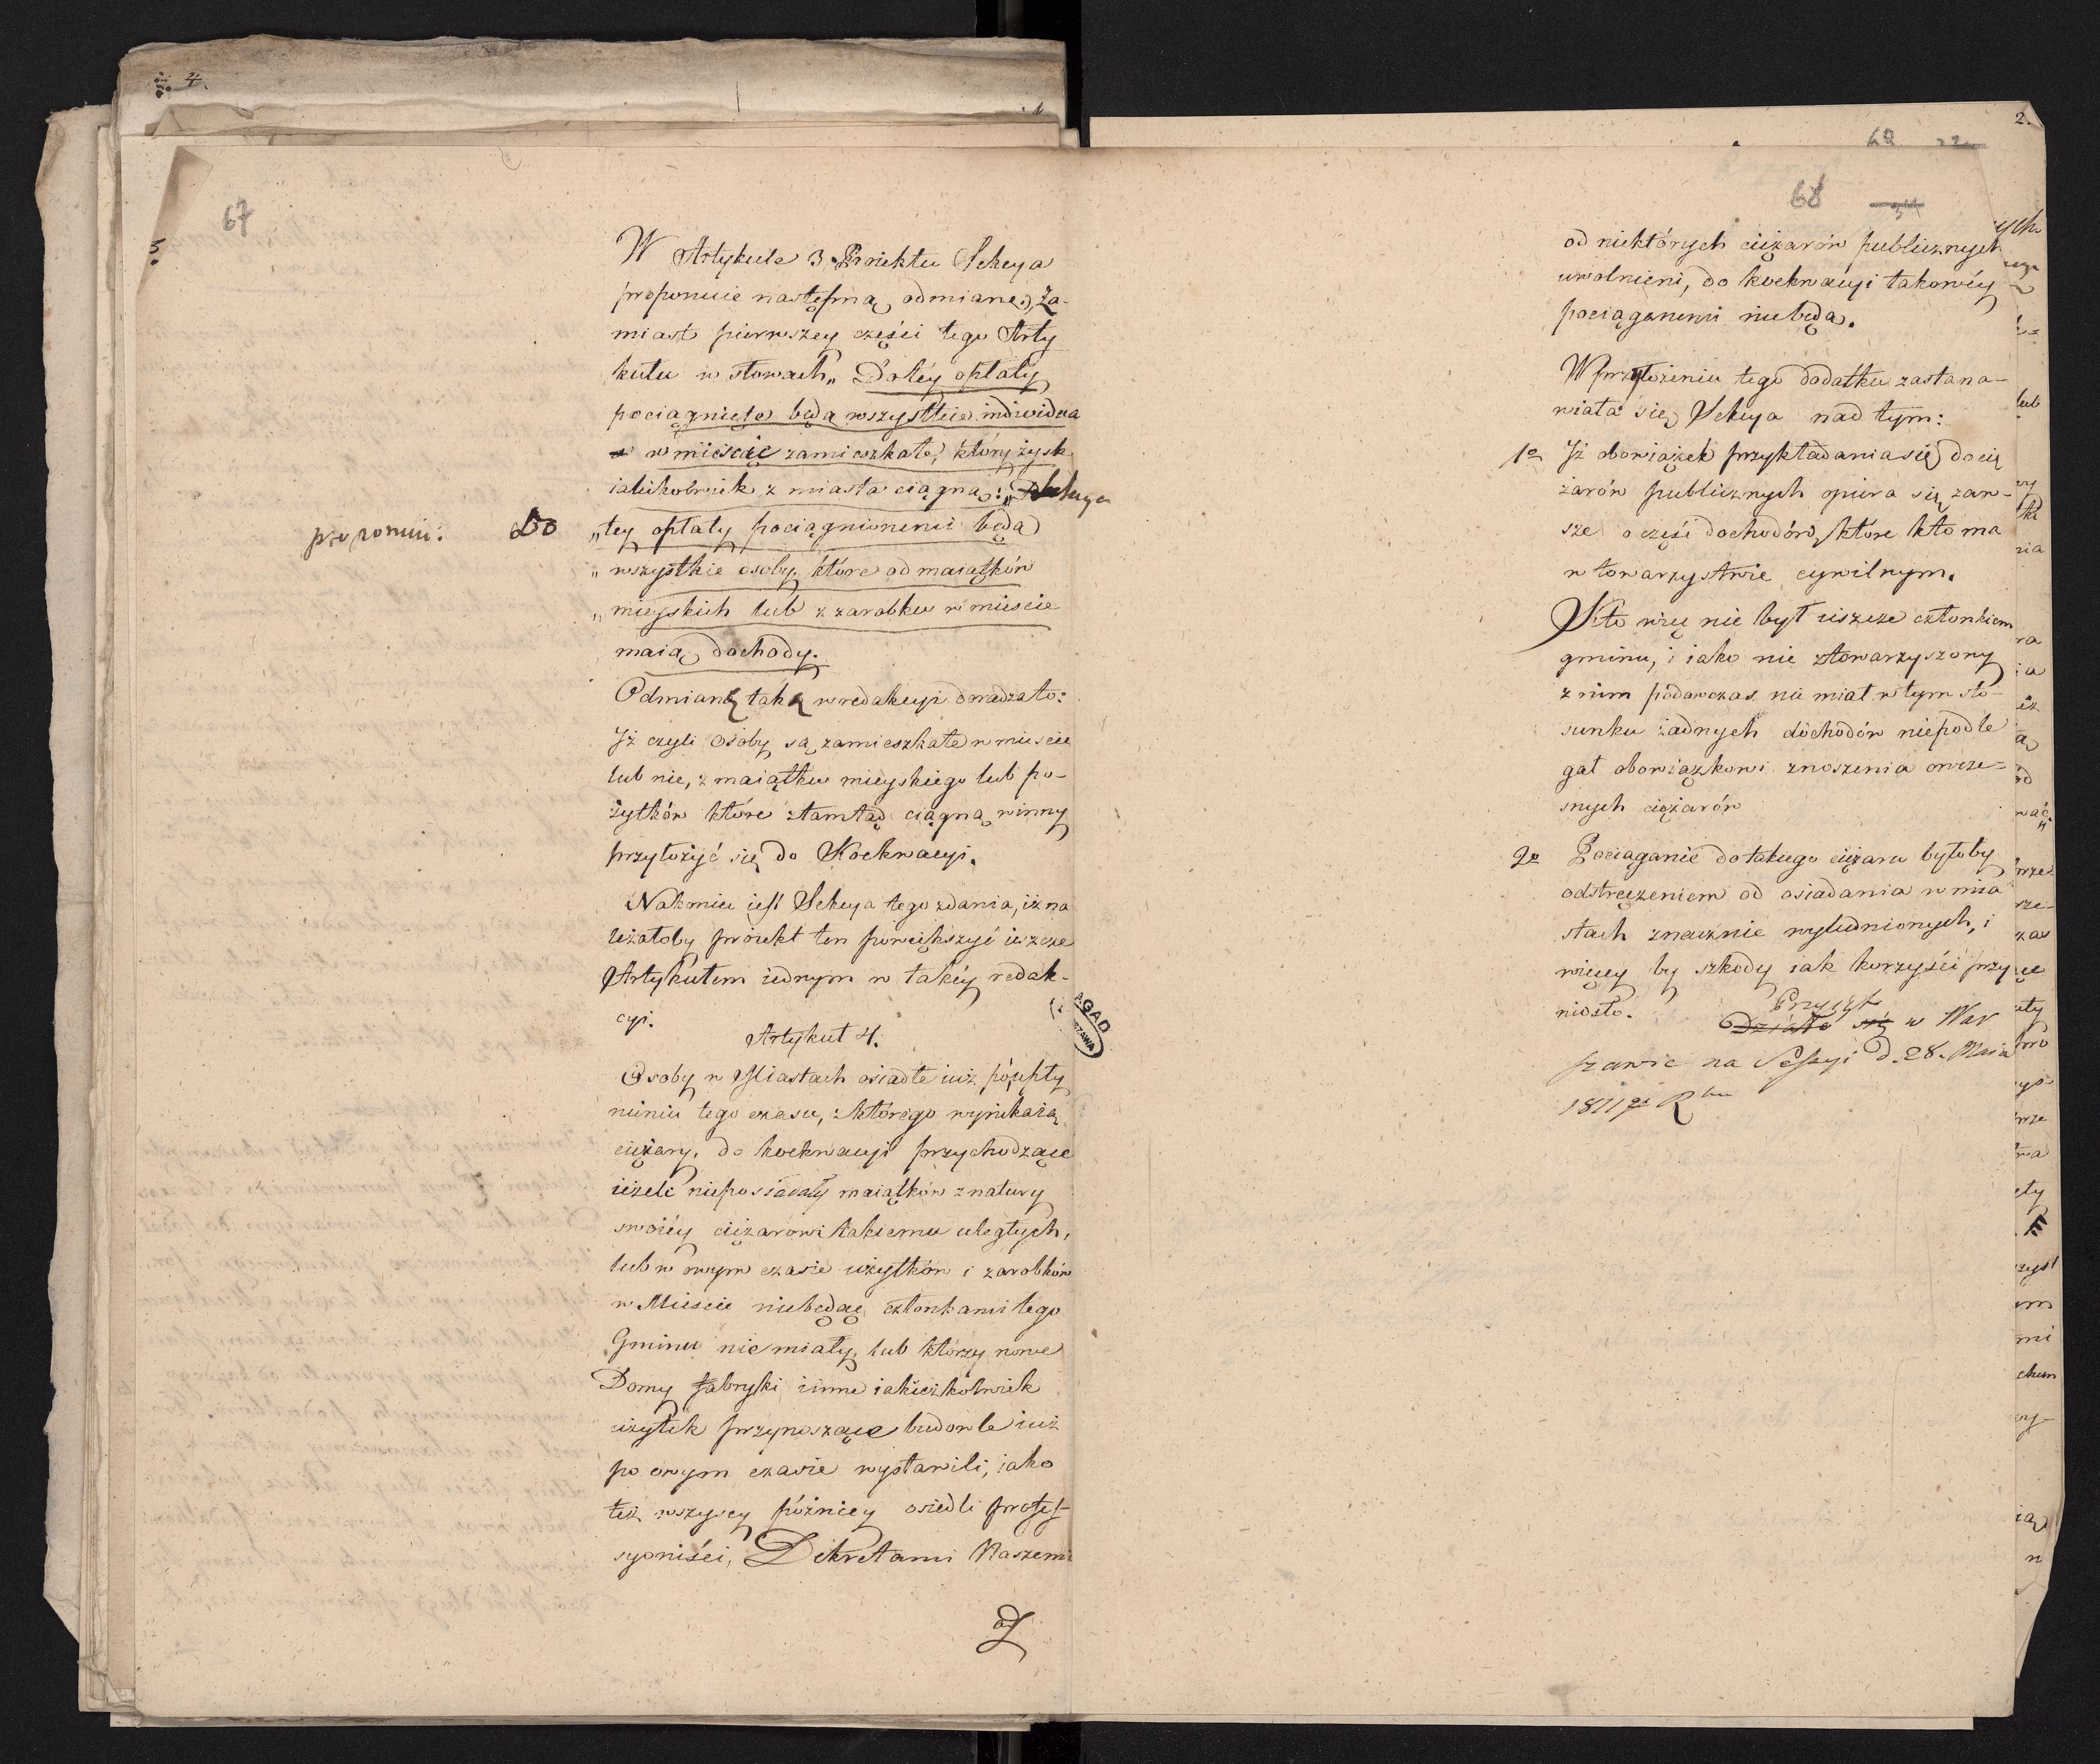 4.
67
W Artykule 3. Proiektu Sekcya
proponuie następną odmianę, Za-
miast pierwszey części tego Arty
kułu w słowach „ Do téy opłaty
pociągnięte będą wszystkie indiwidua
w mieście zamieszkałe, który zysk
iakikolwiek z miasta ciągną: „
proponuie: Do
„tey opłaty pociągnionemi będą
„ wszystkie osoby, które od maiątków
„ mieyskich lub z zarobku w mieście
maią dochody.
Odmianę taką w redakcyi doradzało:
Iż czyli osoby są zamieszkałe w mieście
lub nie, z maiątku mieyskiego lub po-
żytków które ztamtąd ciągną winny
przyłożyć się do Koekwacyi.
Nakoniec iest Sekcya tego zdania, iż na
leżałoby proiekt ten powiększyć ieszcze
Artykułem iednym w takiéy redak-
cyi.
Artykuł 4.
Osoby w Miastach osiadłe iuż po upły
nieniu tego czasu, z którego wynikaią
ciężary, do koekwacyi przychodzące
ieżele nieposiadały maiątków z natury
swoiéy ciężarowi takiemu uległych,
lub w owym czasie użytków i zarobków
w Mieście niebędąc członkami tego
Gminu nie miały, lub którzy nowe
Domy fabryki i inne iakieżkolwiek
użytek przynoszące budowle iuż
po owym czasie wystawili, iako
też wszyscy późniey osiedli profes-
syoniści, Dekretami Naszemi
od
AGAD
WARSZAWA
2.
68
68
od niektórych ciężarów publicznych
uwolnieni, do koekwacyi takowéy
pociąganemi niebędą.
W przyłożeniu tego dodatku zastana-
wiała się Sekcya nad tym:
1o Iż obowiązek przykładania się do cię
żarów publicznych opiera się zaw-
sze o część dochodów, które kto ma
w towarzystwie cywilnym.
Kto więc nie był ieszcze członkiem
gminu, i iako nie ztowarzyszony
z nim podówczas nie miał w tym sto-
sunku żadnych dochodów niepodle
gał obowiązkowi znoszenia owcze-
snych ciężarów
2o Pociąganie do takiego ciężaru byłoby
odstręczeniem od osiadania w mia
stach znacznie wyludnionych, i
więcey by szkody iak korzyści przy
niosło.
Przyięto
Działo się w War
szawie na Sessyi d. 28. Maia
1811go Rku